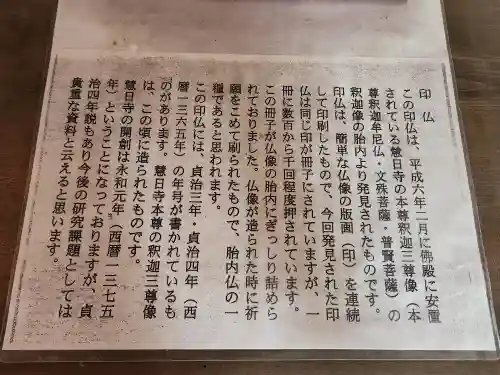 印仏
この印仏は、平成六年二月に佛殿に安置
されている慧日寺の本尊釈迦三尊像（本
尊釈迦牟尼仏・文殊菩薩・普賢菩薩）の
釈迦像の胎内より発見されたものです。
印仏は、簡単な仏像の版画（印）を連続
して印刷したもので、今回発見された印
仏は同じ印が冊子にされていますが、一
冊に数百から千回程度押されています。
この冊子が仏像の胎内にぎっしり詰めら
れておりました。仏像が造られた時に祈
願をこめて刷られたもので、胎内仏の一
種であると思われます。
この印仏には、貞治三年・貞治四年（西
暦一三六五年）の年号が書かれているも
のがあります。慧日寺本尊の釈迦三尊像
は、この頃に造られたものです。
慧日寺の開創は永和元年（西暦一三七五
年）ということになっておりますが、貞
治四年説もあり今後の研究課題としては
貴重な資料と云えると思います。